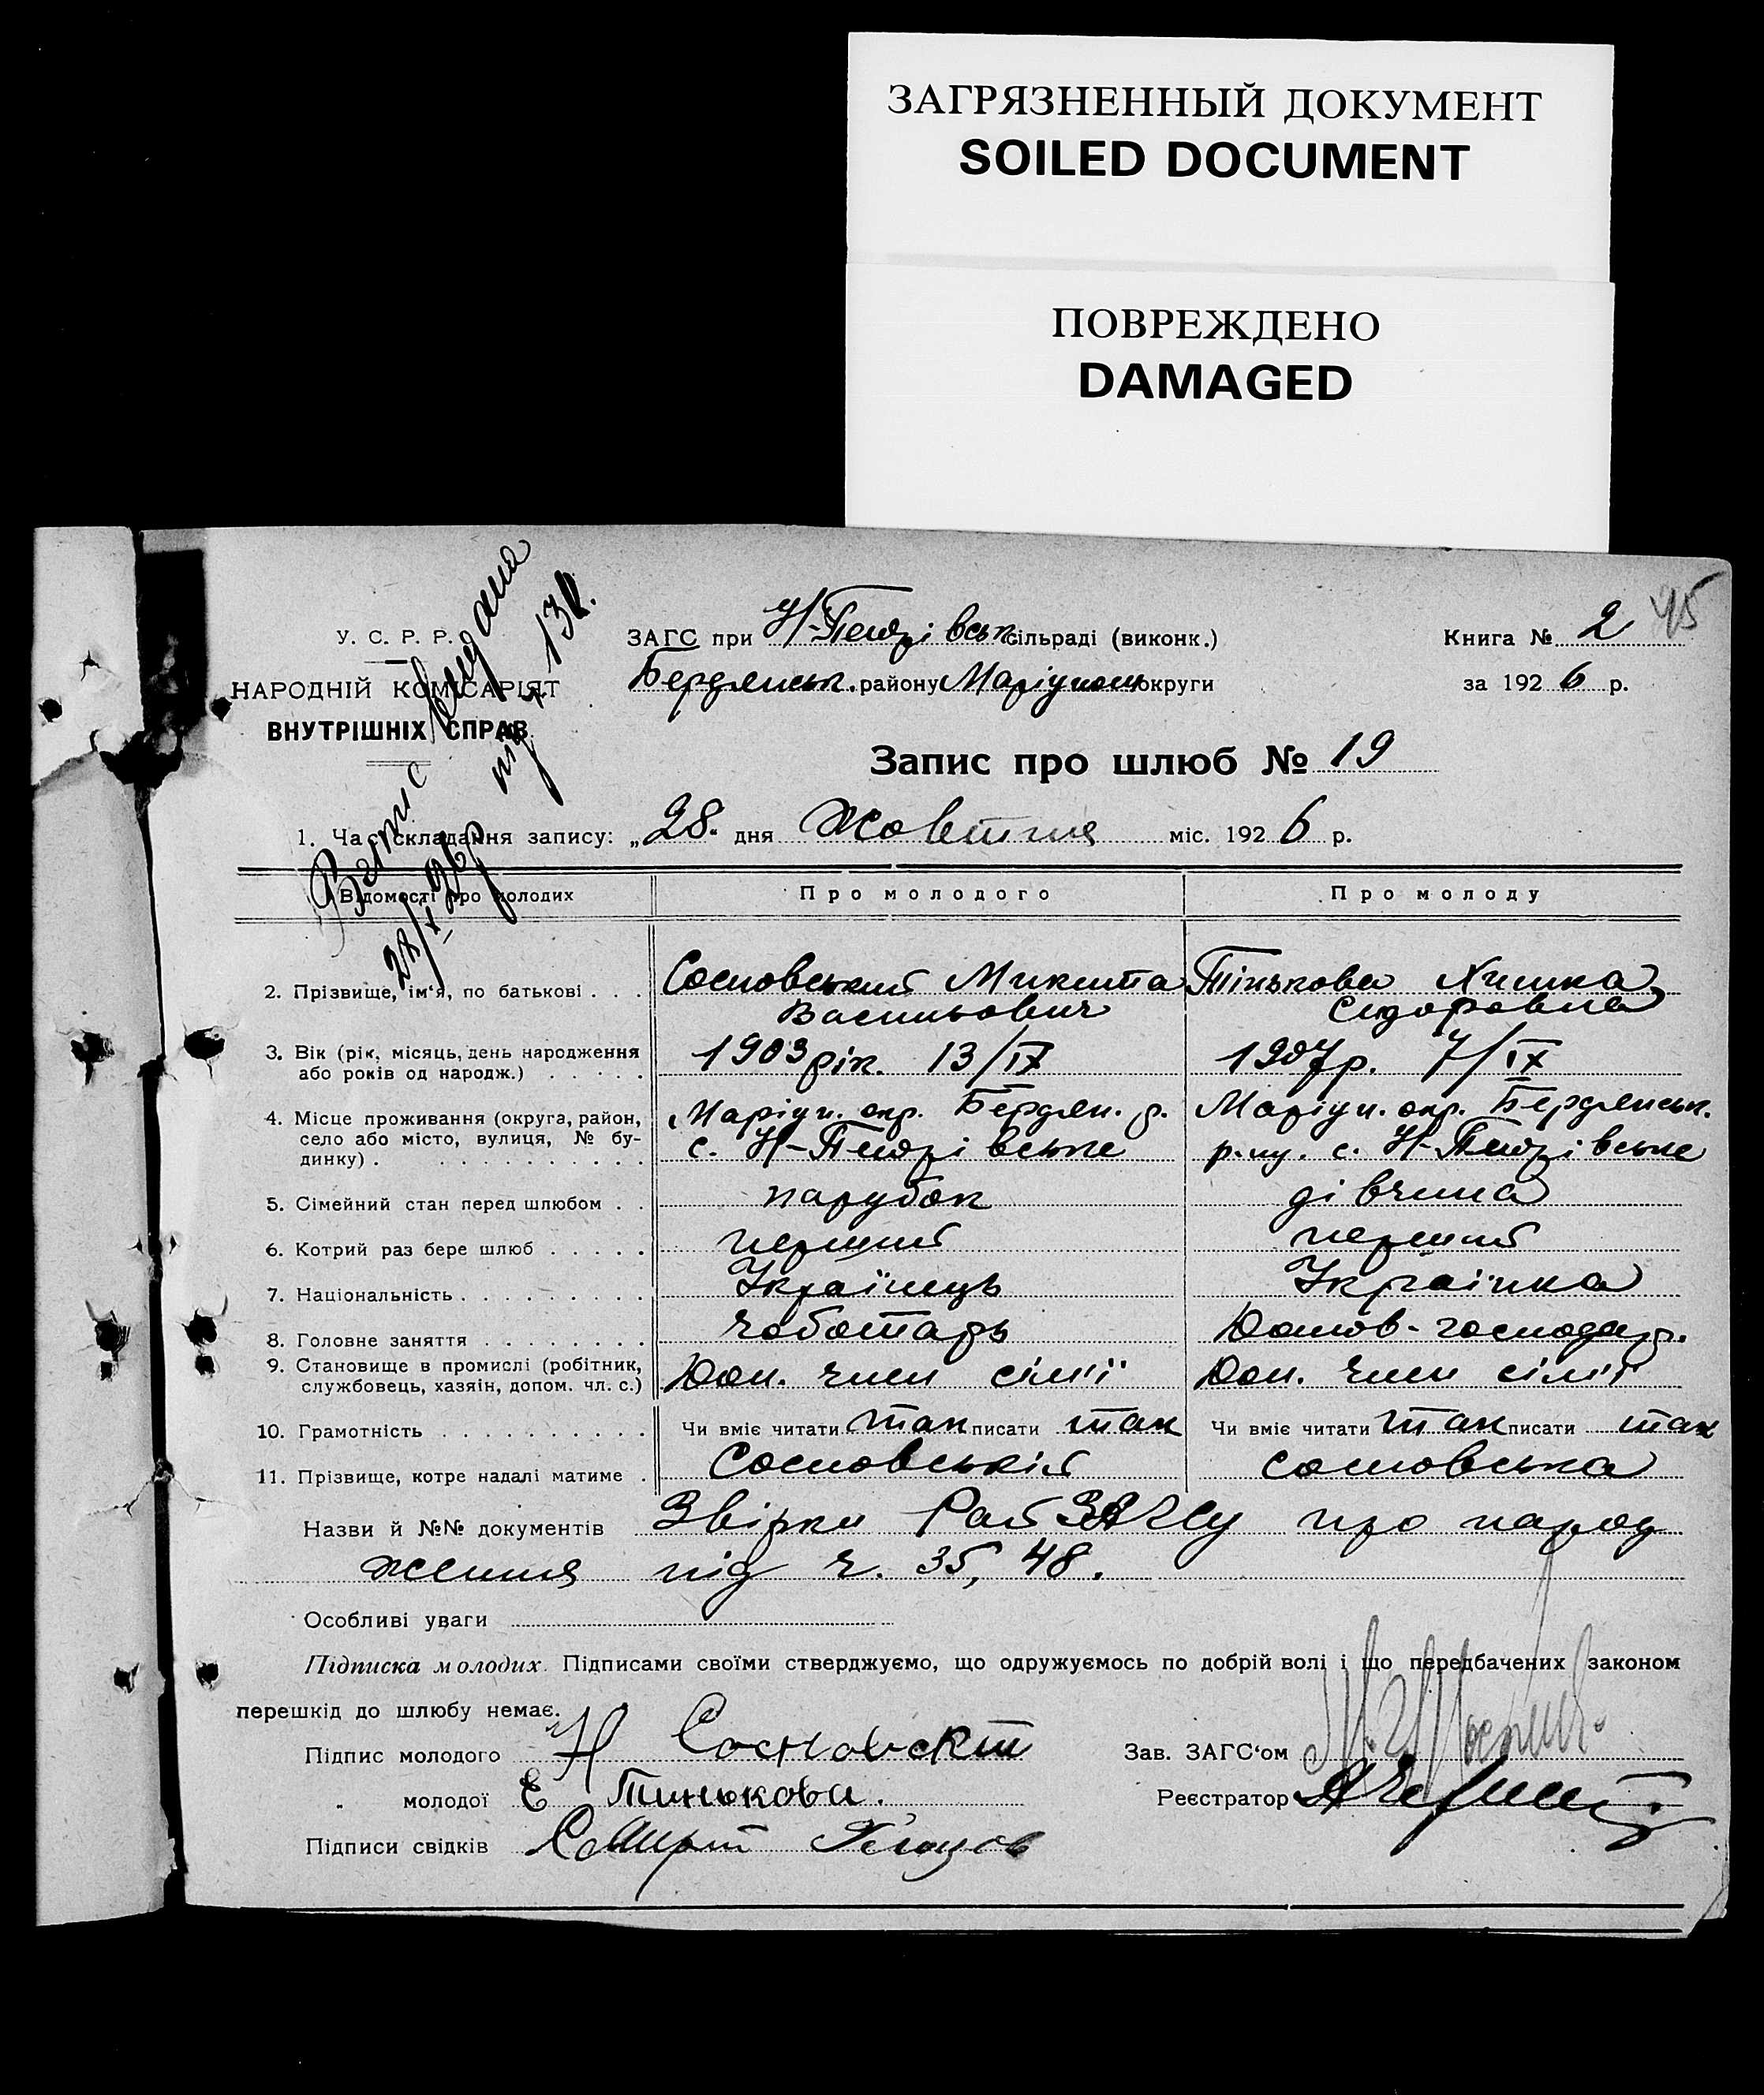 ЗАГРЯЗНЕННЫЙ ДОКУМЕНТ
SOILED DOCUMENT
ПОВРЕЖДЕНО
DAMAGED
45
У. С. Р. Р.
НАРОДНІЙ КОМІСАРІЯТ
ВНУТРІШНІХ СПРАВ
Витпис видана
28/X 26р під ч. 138.
ЗАГС при Н-Петрівськ. сільраді (виконк.)
Бердянськ. району Маріупольс округи
Книга № 2
за 1926 р.
Запис про шлюб № 19
1. Час складання запису: „28. дня Жовтня міс. 1926 р.
Відомості про молодих Про молодого Про молоду
2. Прізвище, ім'я, по батькові . . . Сосновський Микита Тінькова Химка
Васильович Сидоровна
3. Вік (рік, місяць, день народження
або років од народж.) . . . . . 1903 рік. 13/IX 1907р. 7/IX
4. Місце проживання (округа, район, Маріуп. окр. Бердян. р. Маріуп. окр. Бердянськ.
село або місто, вулиця, № бу- с. Н-Петрівське р-ну. с. Н-Петрівське
динку) . . . . . . . . . . .
5. Сімейний стан перед шлюбом . . парубок дівчина
6. Котрий раз бере шлюб . . . . . перший перший
7. Національність . . . . . . . . . Українець Українка
8. Головне заняття . . . . . . . . чоботарь Домов-господар.
9. Становище в промислі (робітник,
службовець, хазяїн, допом. чл. с.) Доп. член сім'ї Доп. член сім'ї
10. Грамотність . . . . . . . . . . Чи вміє читати так писати так Чи вміє читати так писати так
11. Прізвище, котре надалі матиме . Сосновській Сосновська
Назви й №№ документів Звірки РайЗАГСу про народ
ження під ч. 35, 48.
Особливі уваги
Підписка молодих. Підписами своїми стверджуємо, що одружуємось по добрій волі і що передбачених законом
перешкід до шлюбу немає.
Підпис молодого Н Сосновскій Зав. ЗАГС'ом
„ молодої Е Тинькова. Реєстратор
Підписи свідків